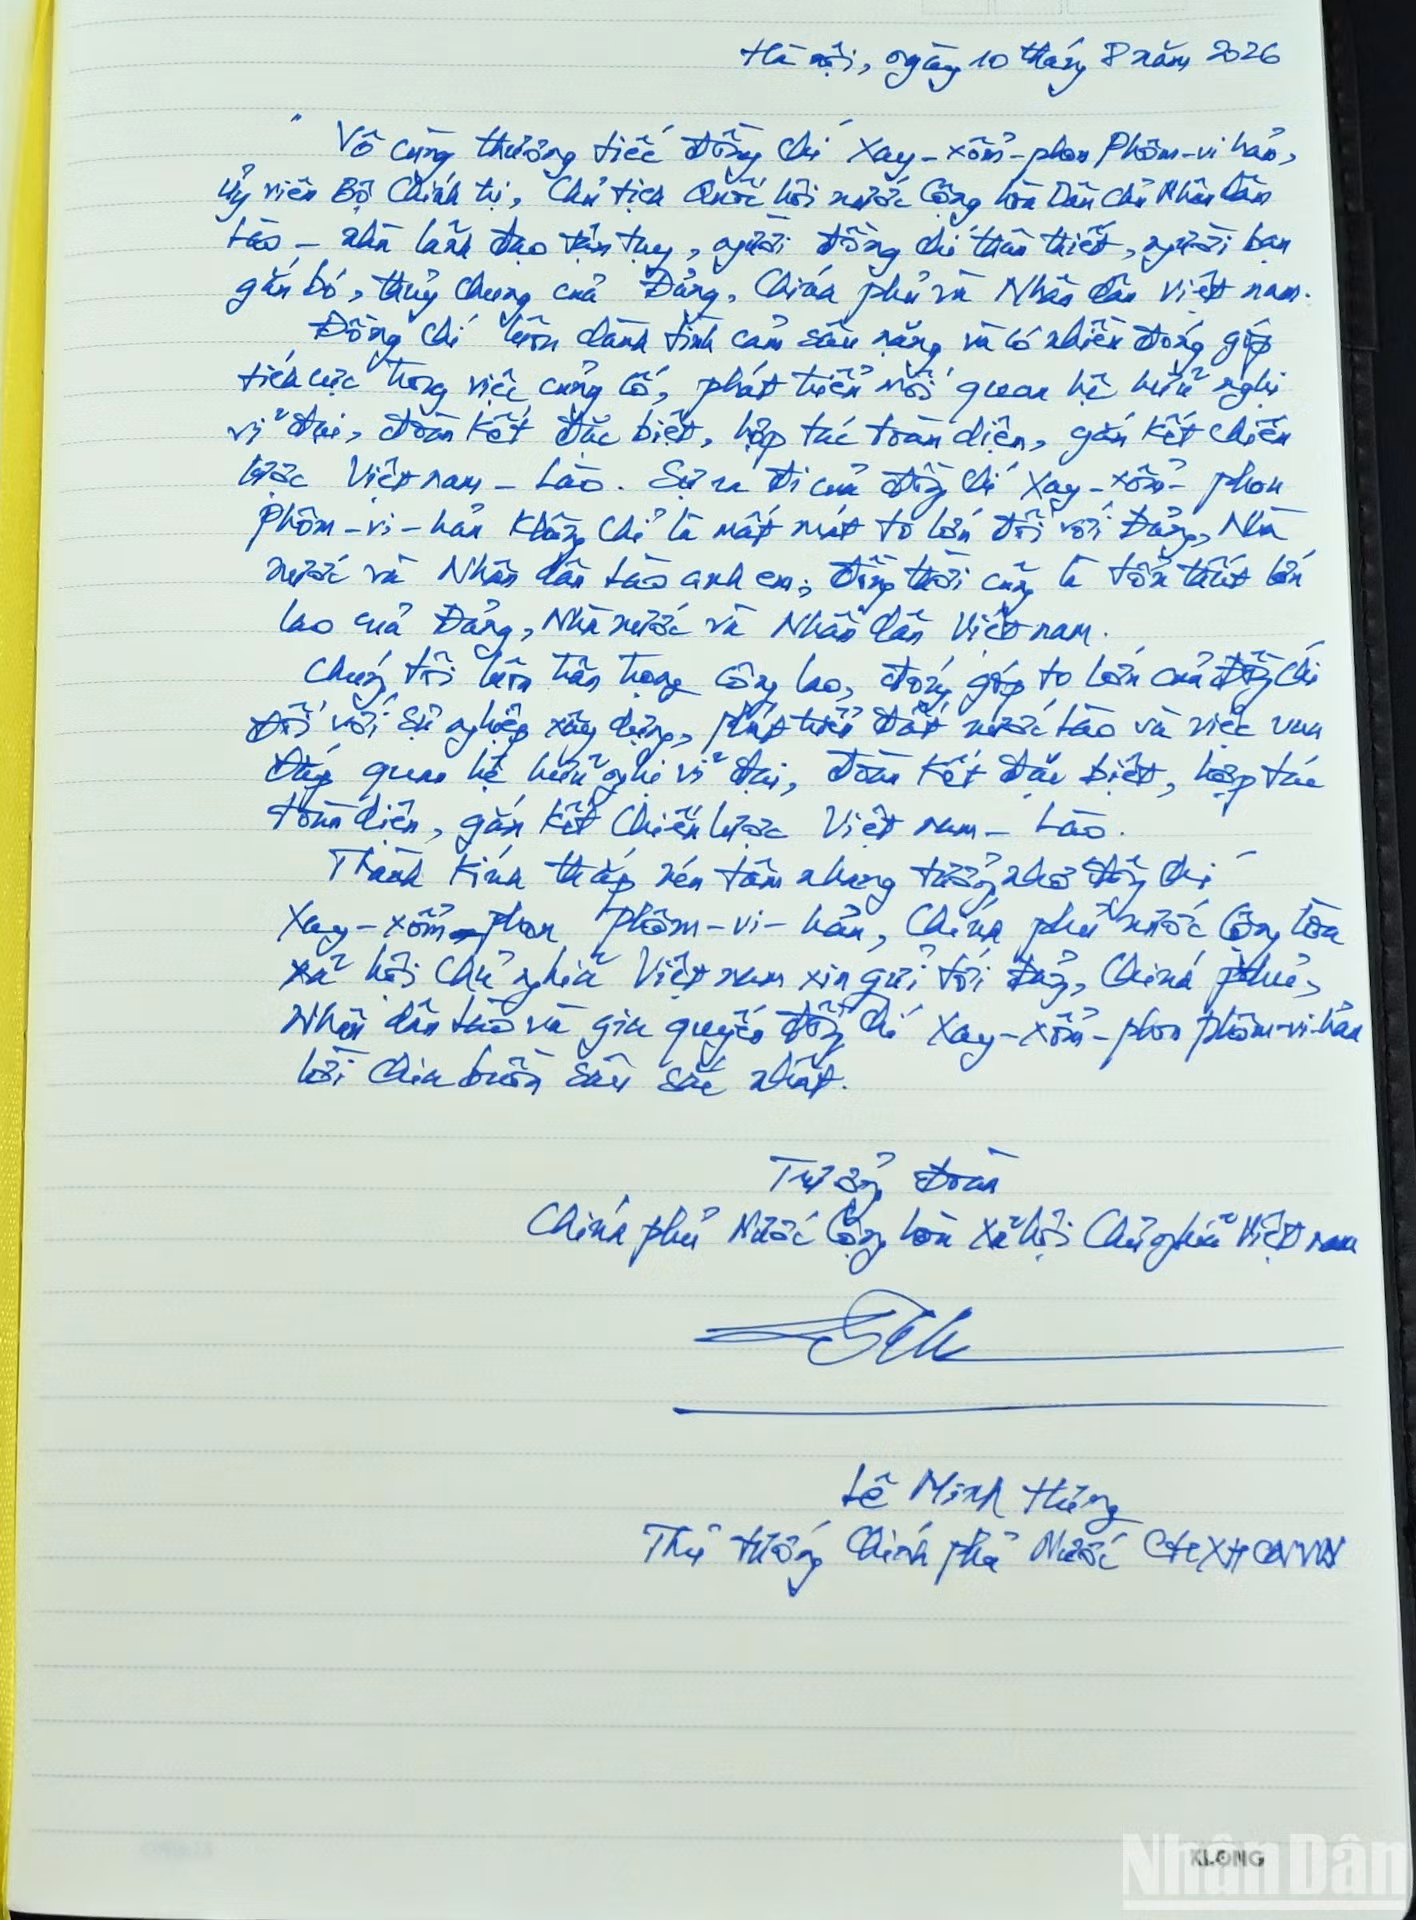 Hà nội, ngày 10 tháng 8 năm 2026
" Vô cùng thương tiếc đồng chí Xay-xổm-phon Phôm-vi-hản,
Ủy viên Bộ Chính trị, Chủ tịch Quốc hội nước Cộng hòa Dân Chủ Nhân dân
Lào - nhà lãnh đạo tận tụy, người đồng chí thân thiết, người bạn
gắn bó, thủy chung của Đảng, Chính phủ và Nhân dân Việt nam.
Đồng chí luôn dành tình cảm sâu nặng và có nhiều đóng góp
tích cực trong việc củng cố, phát triển mối quan hệ hữu nghị
vĩ đại, đoàn kết đặc biệt, hợp tác toàn diện, gắn kết chiến
lược Việt nam - Lào. Sự ra đi của đồng chí Xay-xổm-phon
Phôm-vi-hản không chỉ là mất mát to lớn đối với Đảng, Nhà
nước và Nhân dân Lào anh em, đồng thời cũng là tổn thất lớn
lao của Đảng, Nhà nước và Nhân dân Việt nam.
Chúng tôi luôn trân trọng công lao, đóng góp to lớn của đồng chí
đối với sự nghiệp xây dựng, phát triển đất nước Lào và việc vun
đắp quan hệ hữu nghị vĩ đại, đoàn kết đặc biệt, hợp tác
toàn diện, gắn kết chiến lược Việt nam - Lào.
Thành kính thắp nén tâm nhang tưởng nhớ đồng chí
Xay-xổm-phon Phôm-vi-hản, Chính phủ nước Cộng hòa
xã hội Chủ nghĩa Việt nam xin gửi tới Đảng, Chính phủ,
Nhân dân Lào và gia quyến đồng chí Xay-xổm-phon phôm-vi-hản
lời chia buồn sâu sắc nhất.
Trưởng đoàn
Chính phủ Nước Cộng hòa Xã hội Chủ nghĩa Việt nam
Lê Minh Hưng
Thủ tướng Chính phủ Nước CHXHCNVN
KLONG
Nhân Dân